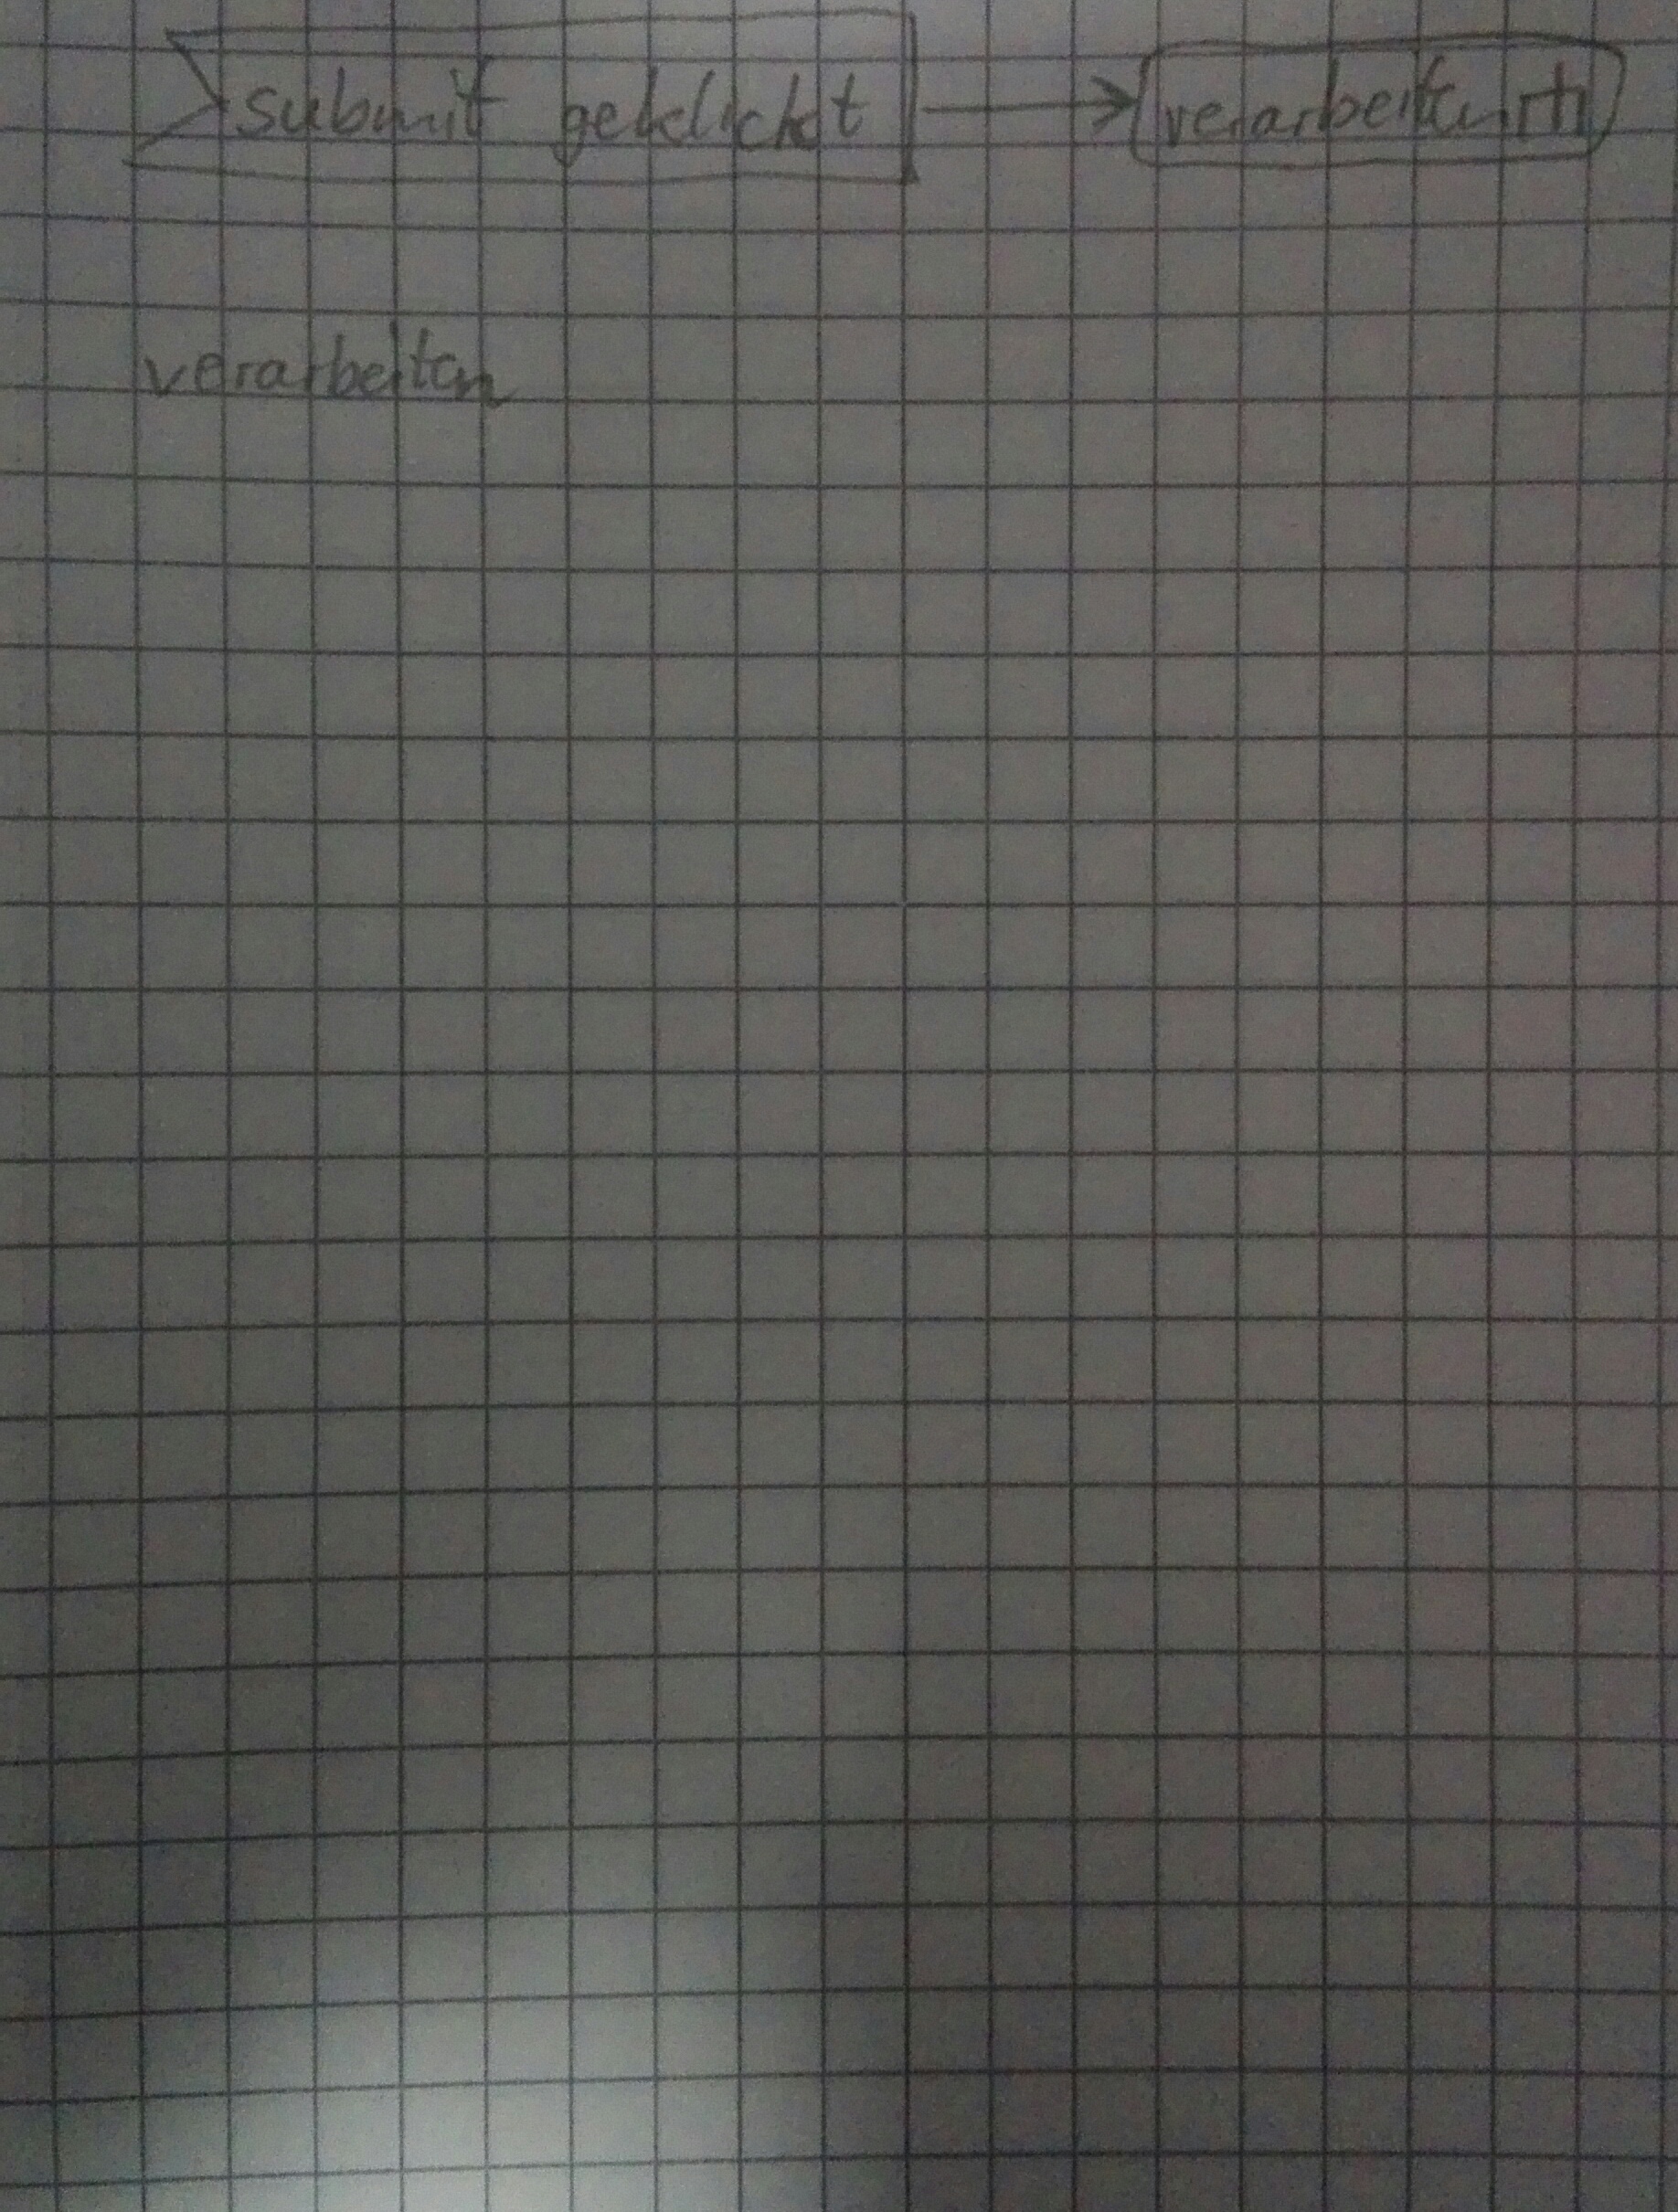 submit geklickt verarbeiten
verarbeiten